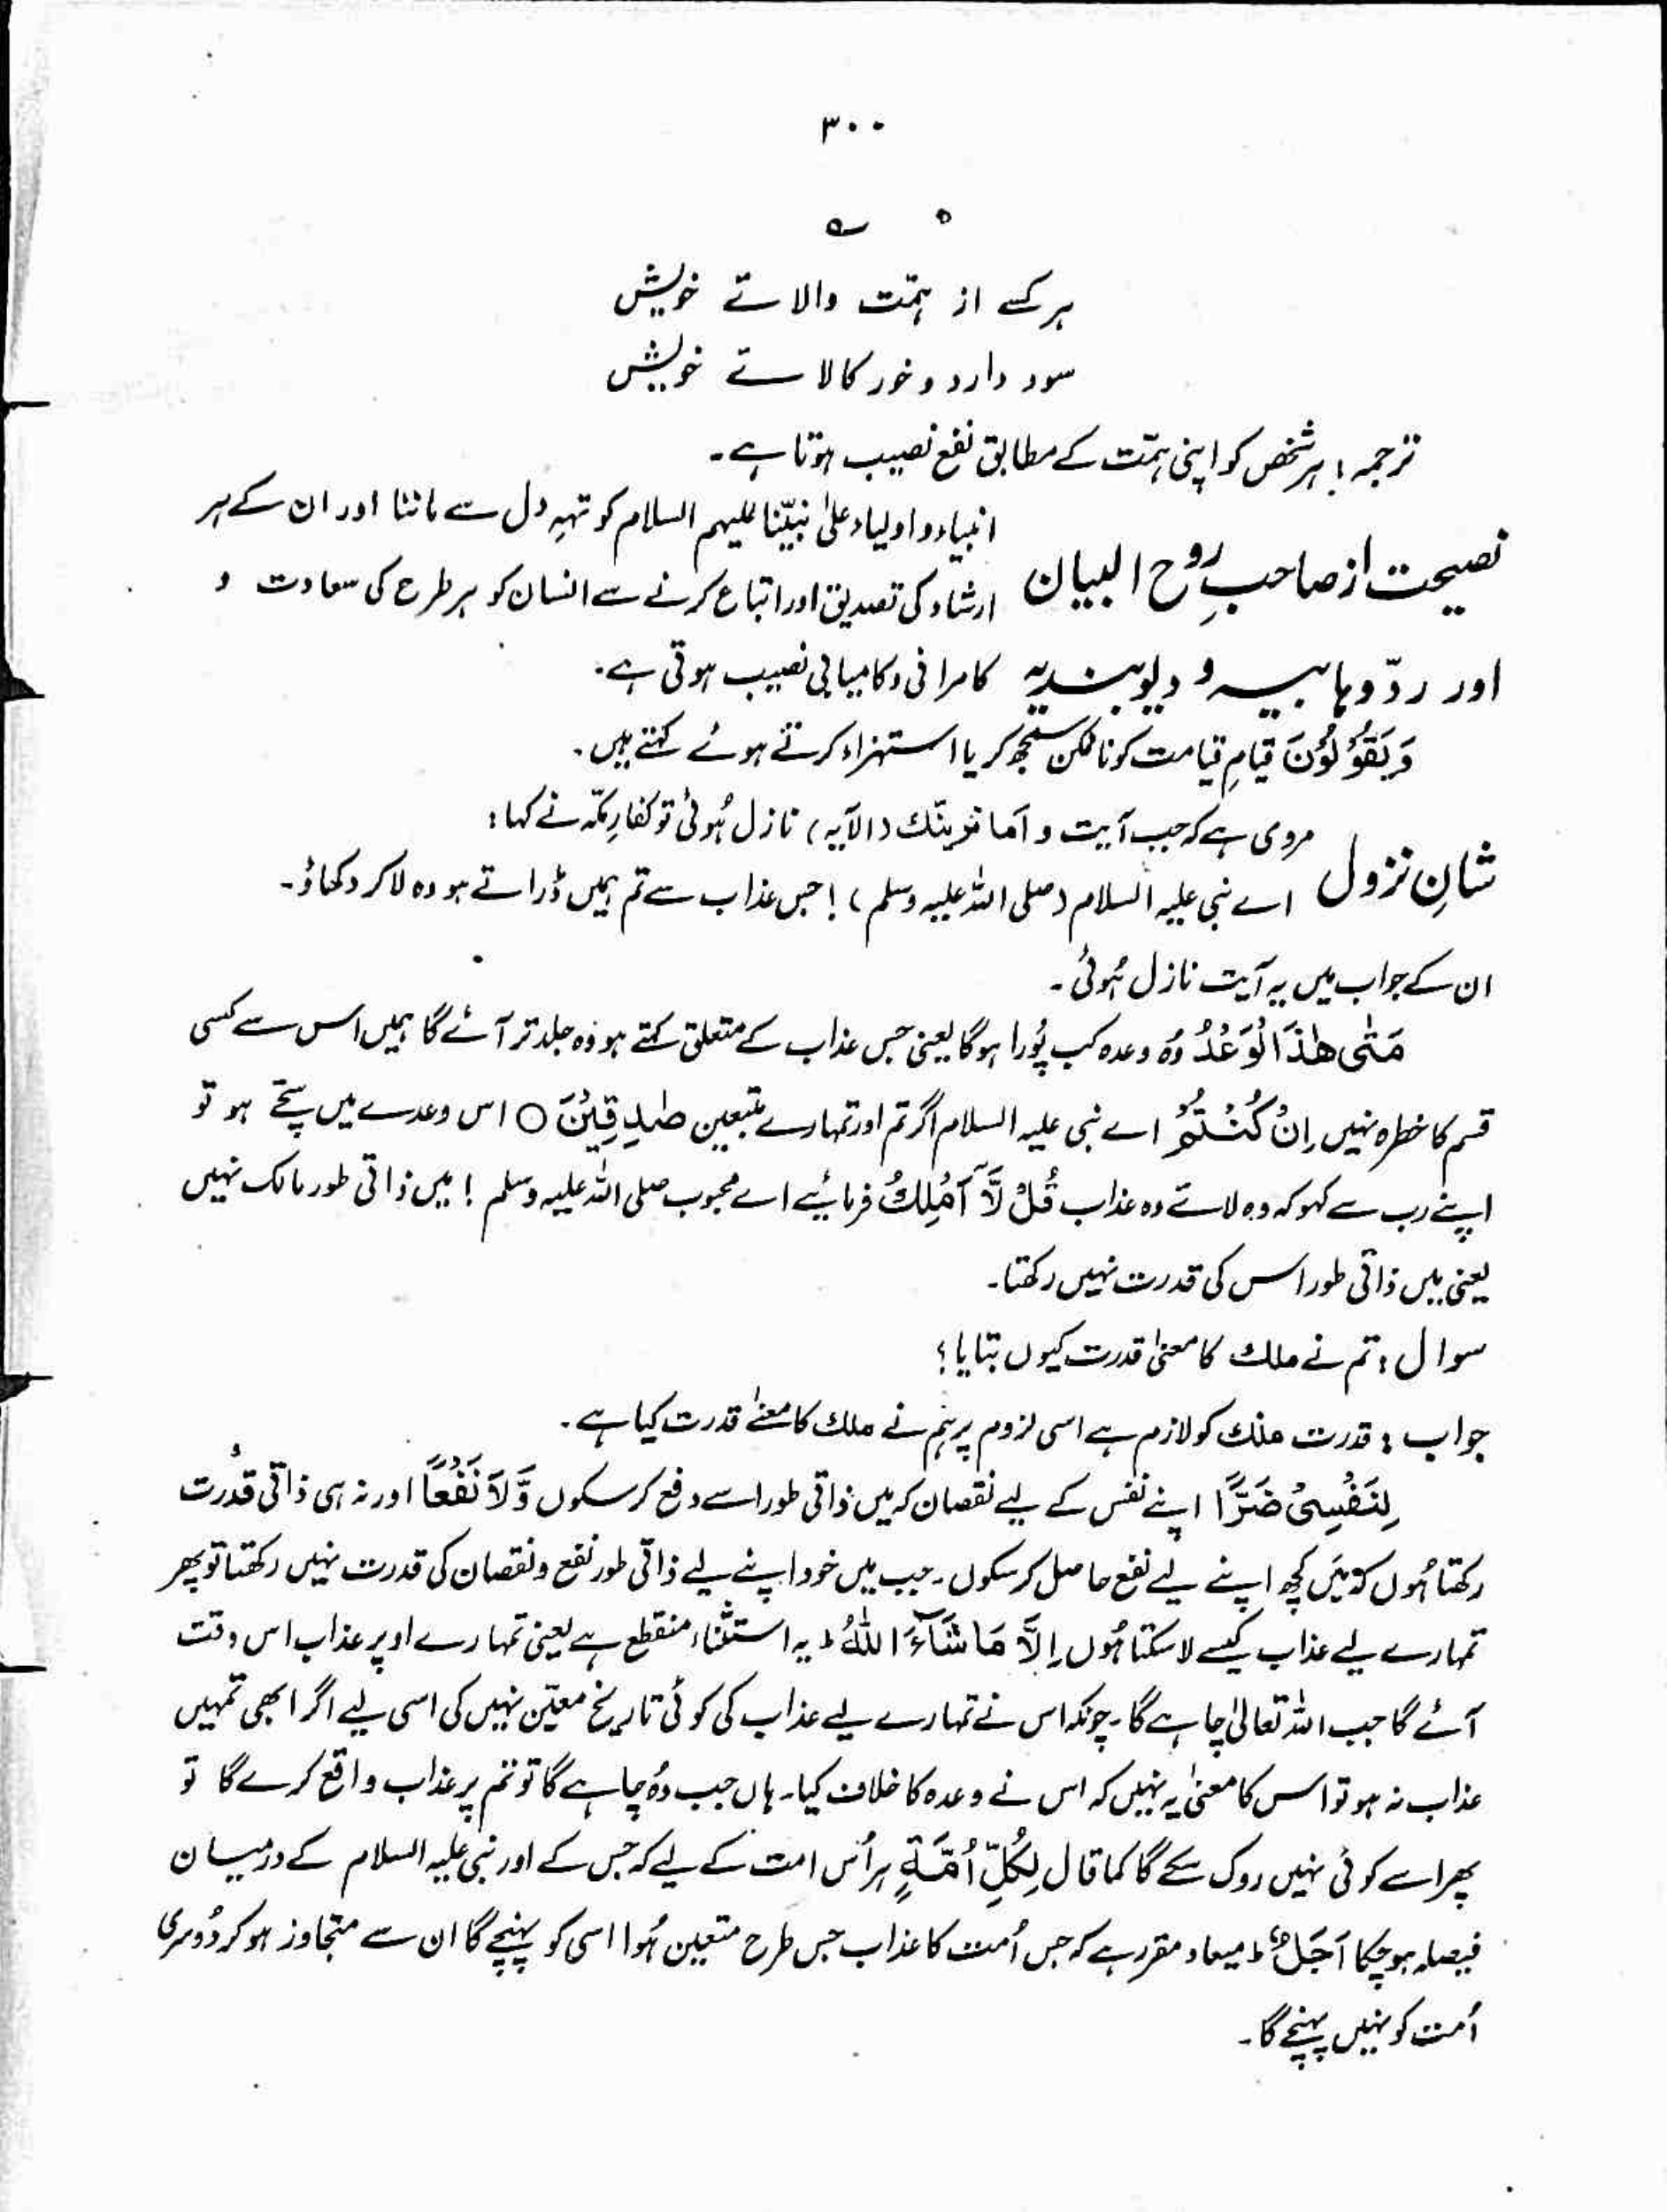 ۳۰۰
ہ ے
ہر کسے از ہمّت والائے خویش
سود دارد و خور کالائے خویش
ترجمہ؛ ہر شخص کو اپنی ہمّت کے مطابق نفع نصیب ہوتا ہے۔
نصیحت از صاحبِ روح البیان
اور ردّ وہابیہ و دیوبندیہ
انبیاء و اولیاء علیٰ نبیّنا علیہم السلام کو تہہِ دل سے ماننا اور ان کے ہر
ارشاد کی تصدیق اور اتباع کرنے سے انسان کو ہر طرح کی سعادت و
کامرانی و کامیابی نصیب ہوتی ہے۔
وَيَقُوْلُوْنَ قیامِ قیامت کو ناممکن سمجھ کر یا استہزاء کرتے ہوئے کہتے ہیں۔
شانِ نزول مروی ہے کہ جب آیت و اما نرینّک (الآیہ) نازل ہُوئی تو کفارِ مکّہ نے کہا:
اے نبی علیہ السلام (صلی اللہ علیہ وسلم)! جس عذاب سے تم ہمیں ڈراتے ہو وہ لا کر دکھاؤ۔
ان کے جواب میں یہ آیت نازل ہُوئی۔
مَتٰى هٰذَا الْوَعْدُ وُہ وعدہ کب پُورا ہو گا یعنی جس عذاب کے متعلق کہتے ہو وُہ جلد تر آئے گا ہمیں اس سے کسی
قسم کا خطرہ نہیں اِنْ كُنْتُمْ اے نبی علیہ السلام اگر تم اور تمہارے متبعین صٰدِقِيْنَ ○ اس وعدے میں سچّے ہو تو
اپنے رب سے کہو کہ وہ لائے وہ عذاب قُلْ لَّآ اَمْلِكُ فرمائیے اے محبوب صلی اللہ علیہ وسلم! میں ذاتی طور مالک نہیں
یعنی میں ذاتی طور اس کی قدرت نہیں رکھتا۔
سوال: تم نے ملک کا معنیٰ قدرت کیوں بتایا؟
جواب: قدرت ملک کو لازم ہے اسی لزوم پر ہم نے ملک کا معنےٰ قدرت کیا ہے۔
لِنَفْسِيْ ضَرًّا اپنے نفس کے لیے نقصان کہ میں ذاتی طور اسے دفع کر سکوں وَّلَا نَفْعًا اور نہ ہی ذاتی قدُرت
رکھتا ہُوں کہ میَں کچھ اپنے لیے نفع حاصل کر سکوں۔ جب میں خود اپنے لیے ذاتی طور نفع و نقصان کی قدرت نہیں رکھتا تو پھر
تمہارے لیے عذاب کیسے لا سکتا ہُوں اِلَّا مَا شَآءَ اللّٰهُ ط یہ استثناء منقطع ہے یعنی تمہارے اوپر عذاب اس وقت
آئے گا جب اللہ تعالیٰ چاہے گا۔ چونکہ اس نے تمہارے لیے عذاب کی کوئی تاریخ معیّن نہیں کی اسی لیے اگر ابھی تمہیں
عذاب نہ ہو تو اس کا معنیٰ یہ نہیں کہ اس نے وعدہ کا خلاف کیا۔ ہاں جب وُہ چاہے گا تو تم پر عذاب واقع کرے گا تو
پھر اسے کوئی نہیں روک سکے گا کما قال لِكُلِّ اُمَّةٍ ہر اُس امت کے لیے کہ جس کے اور نبی علیہ السلام کے درمیان
فیصلہ ہو چکا اَجَلٌ ط میعاد مقرر ہے کہ جس اُمت کا عذاب جس طرح متعین ہُوا اسی کو پہنچے گا ان سے متجاوز ہو کر دُوسری
اُمت کو نہیں پہنچے گا۔